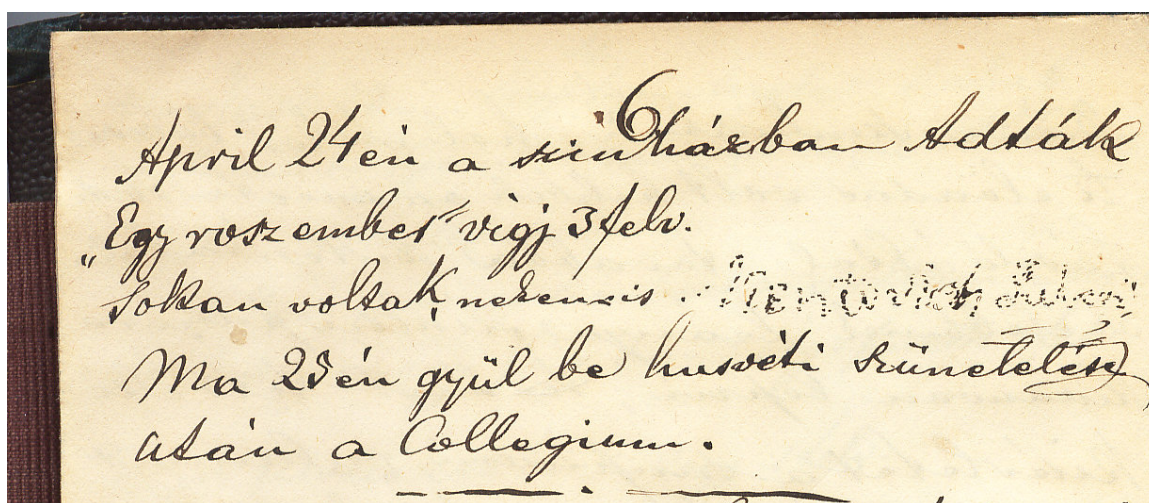 6
April 24én a szinházban Adták
„Egy rosz ember" vigj 3 felv.
Sokan voltak,
Ma 25én gyül be husvéti szünetelése
után a Collegium.